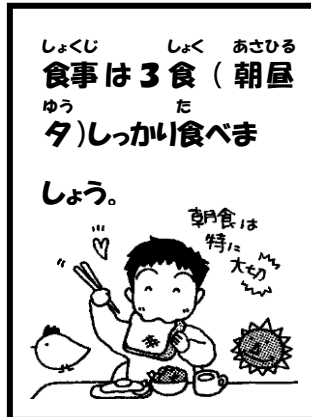 しょくじ しょく あさひる
食事は3食(朝昼
ゆう た
夕)しっかり食べま
しょう。
朝食は
特に
大切